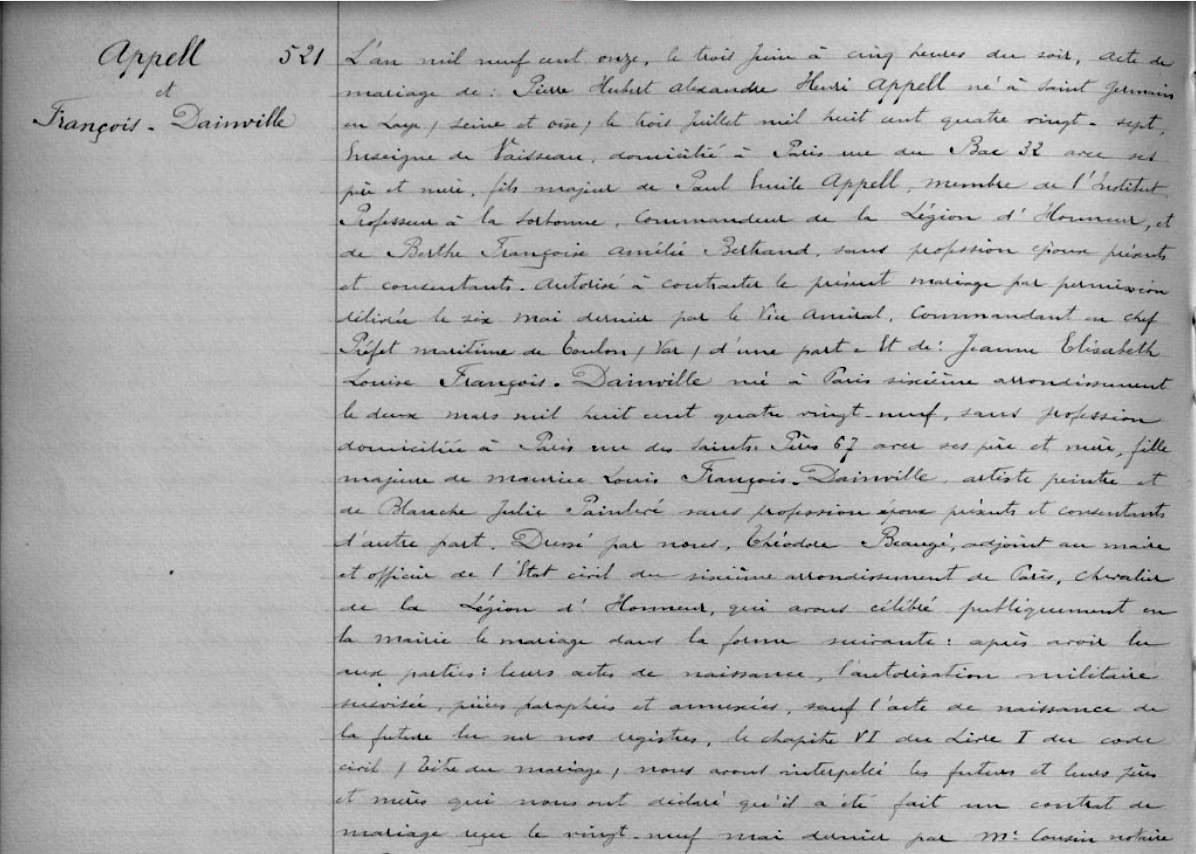 Appell 521
et
François-Dainville
L'an mil neuf cent onze, le trois Juin à cinq heures du soir, acte de
mariage de : Pierre Hubert Alexandre Henri Appell né à Saint Germain
en Laye (Seine et Oise) le trois Juillet mil huit cent quatre vingt-sept,
Enseigne de Vaisseau, domicilié à Paris rue du Bac 32 avec ses
père et mère, fils majeur de Paul Emile Appell, membre de l'Institut,
Professeur à la Sorbonne, Commandeur de la Légion d'Honneur, et
de Berthe Françoise Amélie Bertrand, sans profession époux présents
et consentants. Autorisé à contracter le présent mariage par permission
délivrée le six mai dernier par le Vice Amiral, Commandant en chef
Préfet maritime de Toulon (Var) d'une part. Et de : Jeanne Elisabeth
Louise François-Dainville née à Paris sixième arrondissement
le deux mars mil huit cent quatre vingt-neuf, sans profession
domiciliée à Paris rue des Saints-Pères 67 avec ses père et mère, fille
majeure de Maurice Louis François-Dainville, artiste peintre et
de Blanche Julie sans profession époux présents et consentants
d'autre part. Dressé par nous, Théodore Beaugé, adjoint au maire
et officier de l'Etat civil du sixième arrondissement de Paris, Chevalier
de la Légion d'Honneur, qui avons célébré publiquement en
la mairie le mariage dans la forme suivante : après avoir lu
aux parties : leurs actes de naissance, l'autorisation militaire
susvisée, pièces paraphées et annexées, sauf l'acte de naissance de
la future lu sur nos registres, le chapitre VI du Livre I du code
civil (titre du mariage) nous avons interpellé les futurs et leurs pères
et mères qui nous ont déclaré qu'il a été fait un contrat de
mariage reçu le vingt-neuf mai dernier par Me Cousin notaire